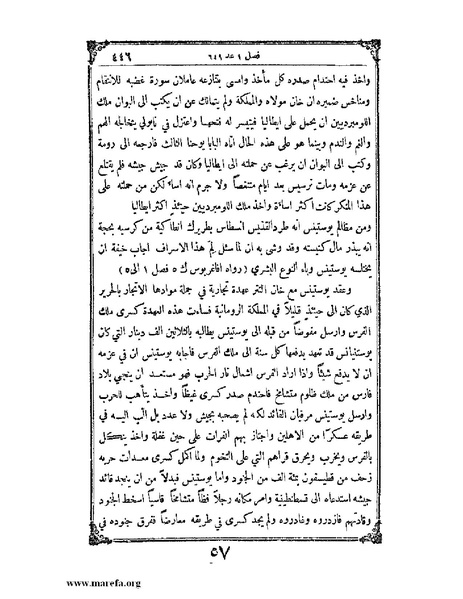 فصل ١ عد ٦٤٩ ٤٤٦
واخذ فيه احتدام صدره كل مأخذ وامسى يتنازعه عاملان سورة غضبه للانتقام
ومناخس ضميره ان خان مولاه والمملكة ولم يتمالك عن ان يكتب الى البوان ملك
اللومبرديين ان يحمل على ايطاليا فيتيسر له فتحها واعتزل في نابولي يتخالجه الهم
والغم والندم وبينما هو على هذه الحال اتاه البابا يوحنا الثالث فارجعه الى رومة
وكتب الى البوان ان يرغب عن حملته الى ايطاليا وكان قد جيش جيشه فلم يقلع
عن عزمه ومات نرسيس بعد ايام متنغصاً ولا جرم انه اساء لكن من حملته على
هذا المنكر كانت اكثر اساءة واخذ ملك اللومبرديين حينئذٍ اكثر ايطاليا
ومن مظالم يوستينس انه طرد القديس انسطاس بطريرك انطاكية من كرسيه بحجة
انه يبذر مال كنيسته وقد وشى به ان لما سئل لم هذا الاسراف اجاب خيفة ان
يختلسه يوستينس وباء النوع البشري (رواه افاغريوس ك ٥ فصل ١ الى ٥)
وعقد يوستينس مع خان التتر عهدة تجارية في جملة موادها الاتجار بالحرير
الذي كان الى حينئذٍ قليلاً في المملكة الرومانية فساءت هذه العهدة كسرى ملك
الفرس وارسل مفوضاً من قبله الى يوستينس يطالبه بالثلاثين الف دينار التي كان
يوستنيانس قد تعهد بدفعها كل سنة الى ملك الفرس فاجابه يوستينس ان في عزمه
ان لا يدفع شيئاً واذا اراد الفرس اشعال نار الحرب فهو مستعد ان ينجي بلاد
فارس من ملك ظلوم متشامخ فاحتدم صدر كسرى غيظاً واخذ يتأهب للحرب
وارسل يوستينس مرقيان القائد لكنه لم يصحبه بجيش ولا عدد بل الّب اليه في
طريقه عسكراً من الاهلين واجتاز بهم الفرات على حين غفلة واخذ ينكل
بالفرس ويخرب ويحرق قراهم التي على التخوم ولما اكمل كسرى معدات حربه
زحف من قطيسفون بمئة الف من الجنود واما يوستينس فبدلاً من ان ينجد قائد
جيشه استدعاه الى قسطنطينية وامر مكانه رجلاً فظاً متشامخاً قاسياً اسخط الجنود
وقادتهم فازدروه وغادروه ولم يجد كسرى في طريقه معارضاً ففرق جنوده في
٥٧
www.marefa.org